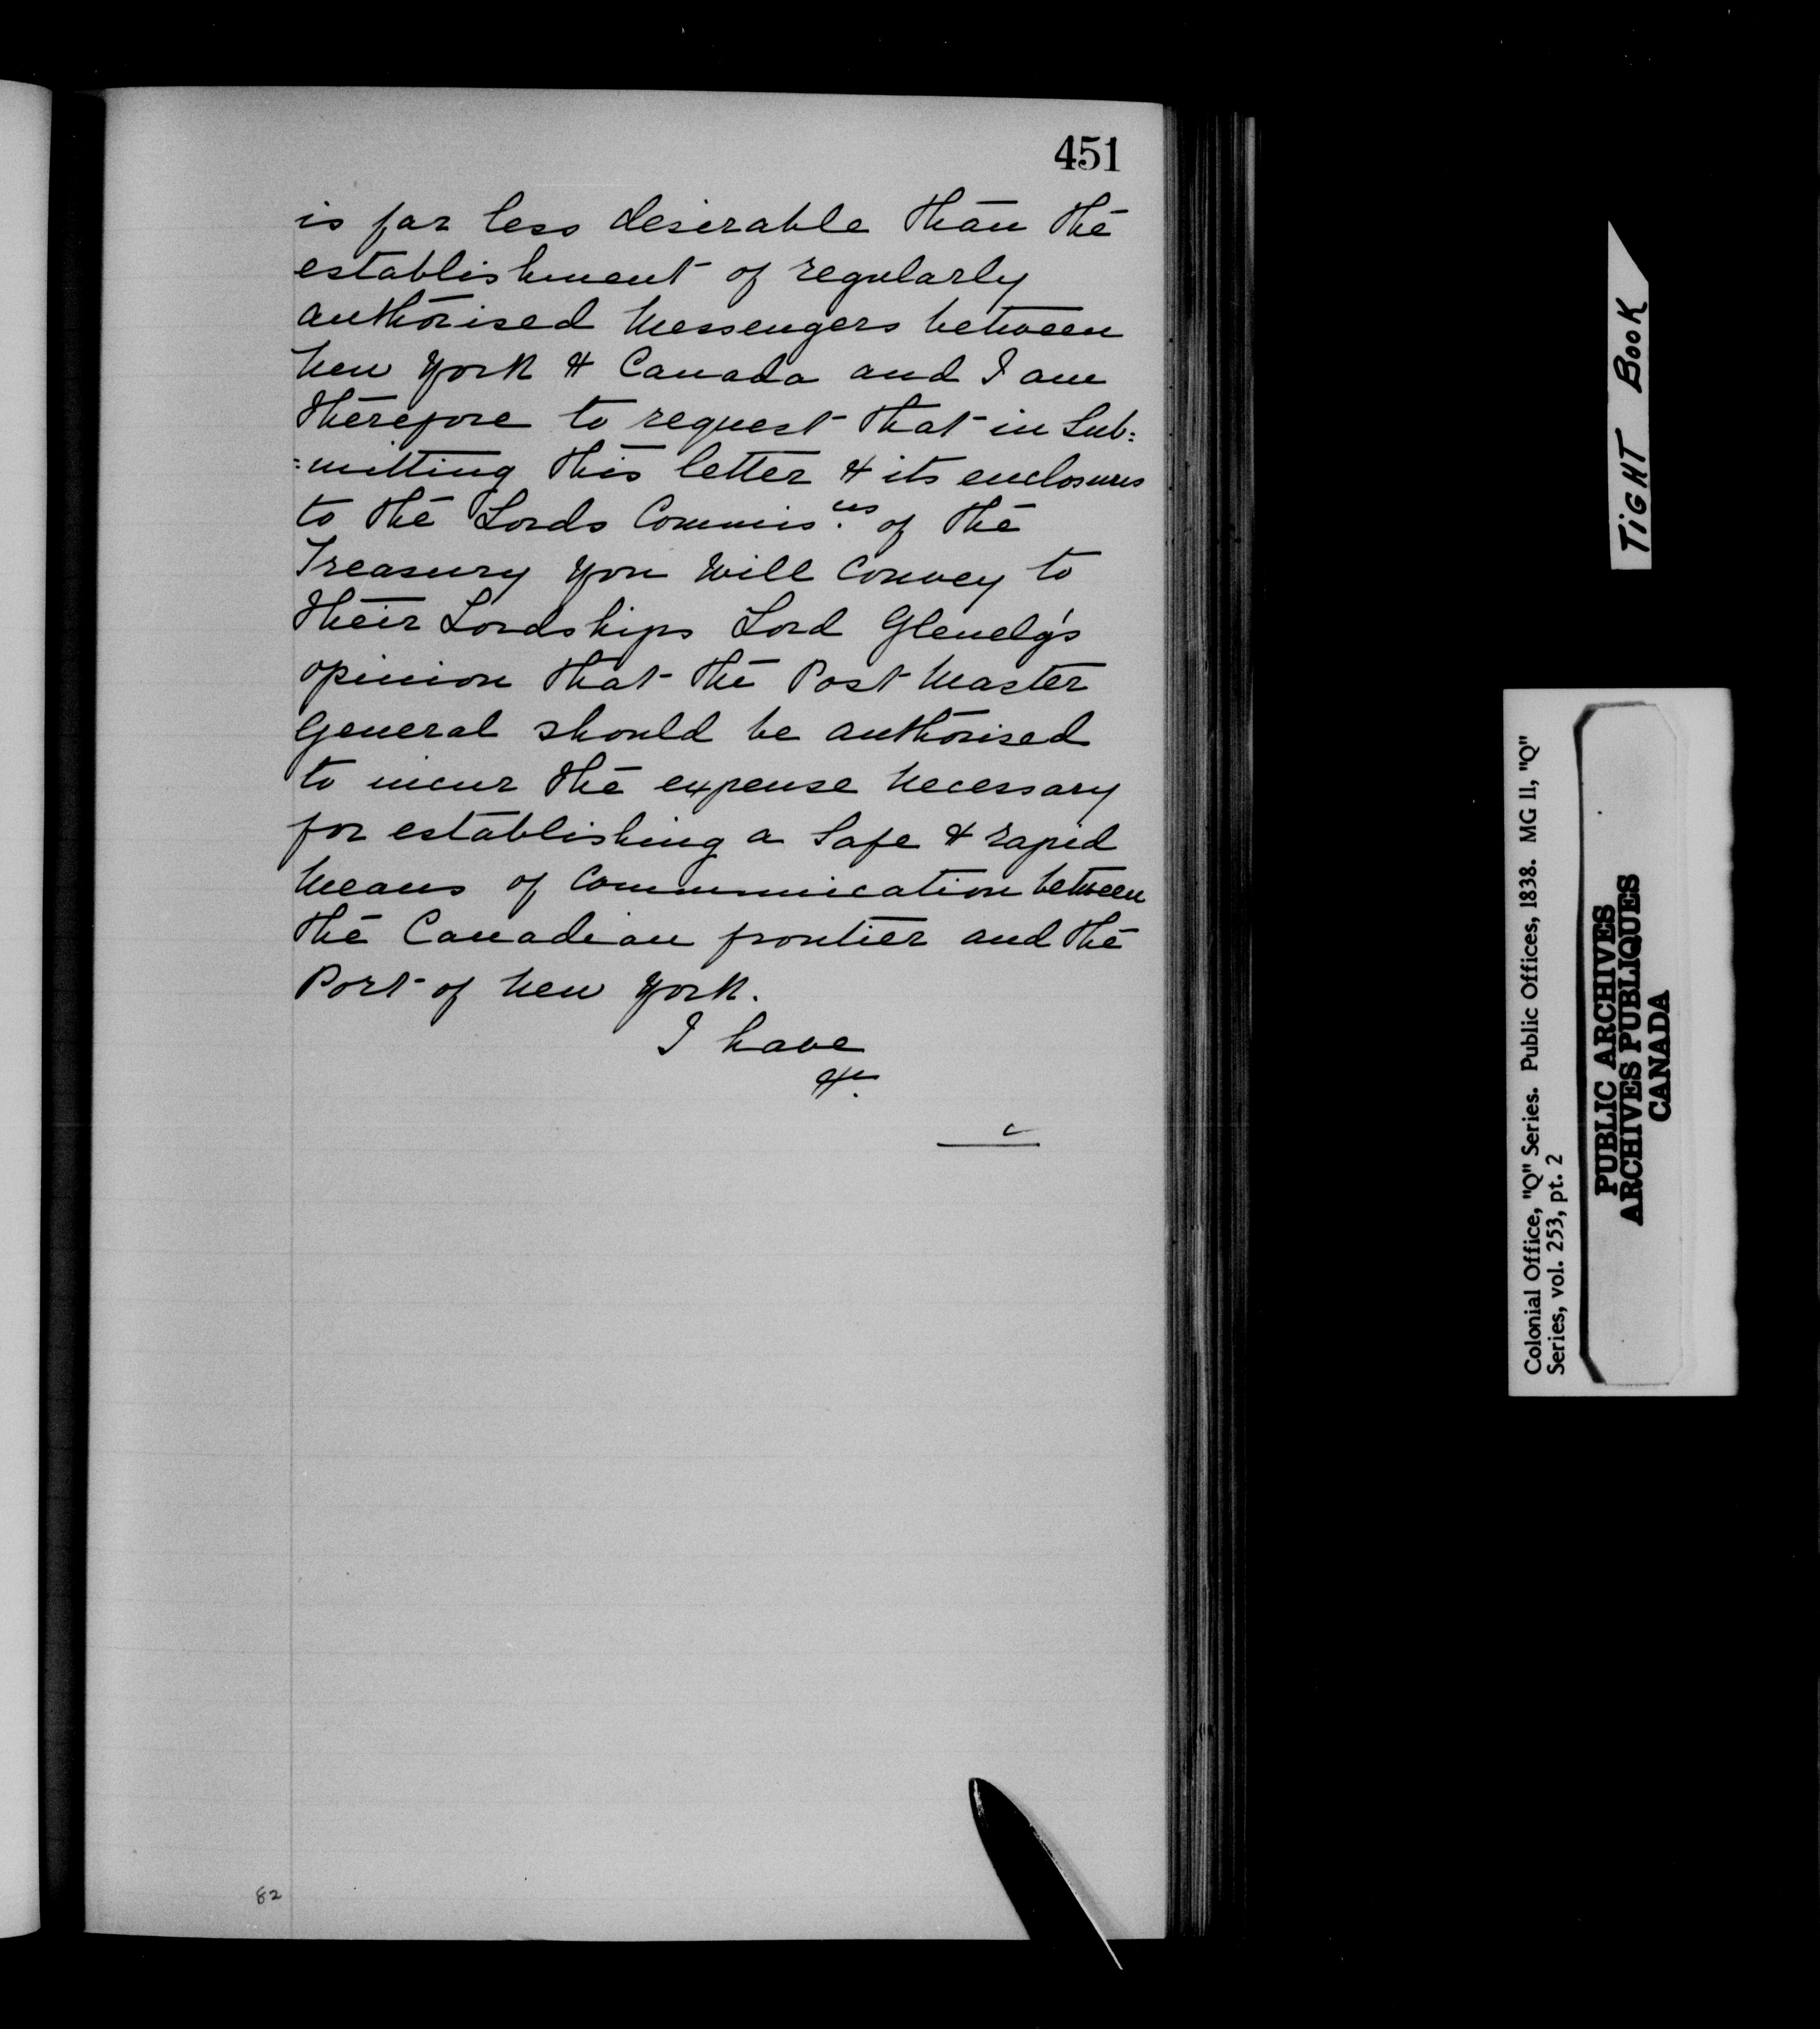 451
is far less desirable than the
establishment of regularly
authorised Messengers between
New York & Canada and I am
therefore to request that in Sub=
=mitting this letter & its enclosures
to the Lords Commis.ers of the
Treasury you will Convey to
their Lordships Lord Glenelg's
opinion that the Post Master
General should be authorised
to incur the expense necessary
for establishing a Safe & rapid
Means of Communication between
the Canadian frontier and the
Port of New York.
I have
&c.
82
TIGHT BOOK
Colonial Office, "Q" Series. Public Offices, 1838. MG 11, "Q"
Series, vol. 253, pt. 2
PUBLIC ARCHIVES
ARCHIVES PUBLIQUES
CANADA